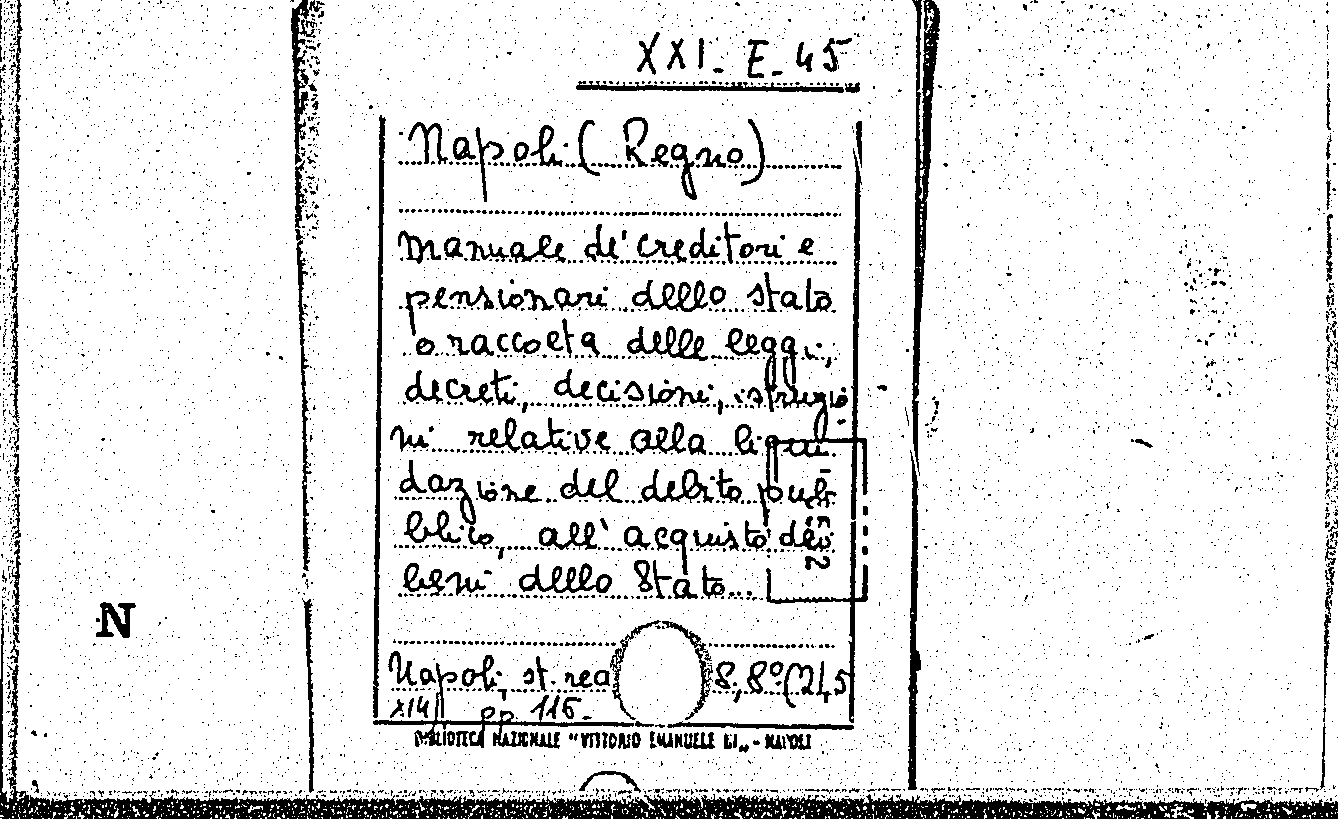 XXI. E. 45
Napoli (Regno)
Manuale de' creditori e
pensionari dello stato
o raccolta delle leggi,
decreti, decisioni, istruzio
ni relative alla liqui-
dazione del debito pub-
blico, all'acquisto dei
beni dello Stato...
N
Napoli, st. rea 8, 8° (24,5
XIV pp. 116.
BIBLIOTECA NAZIONALE "VITTORIO EMANUELE III" - NAPOLI